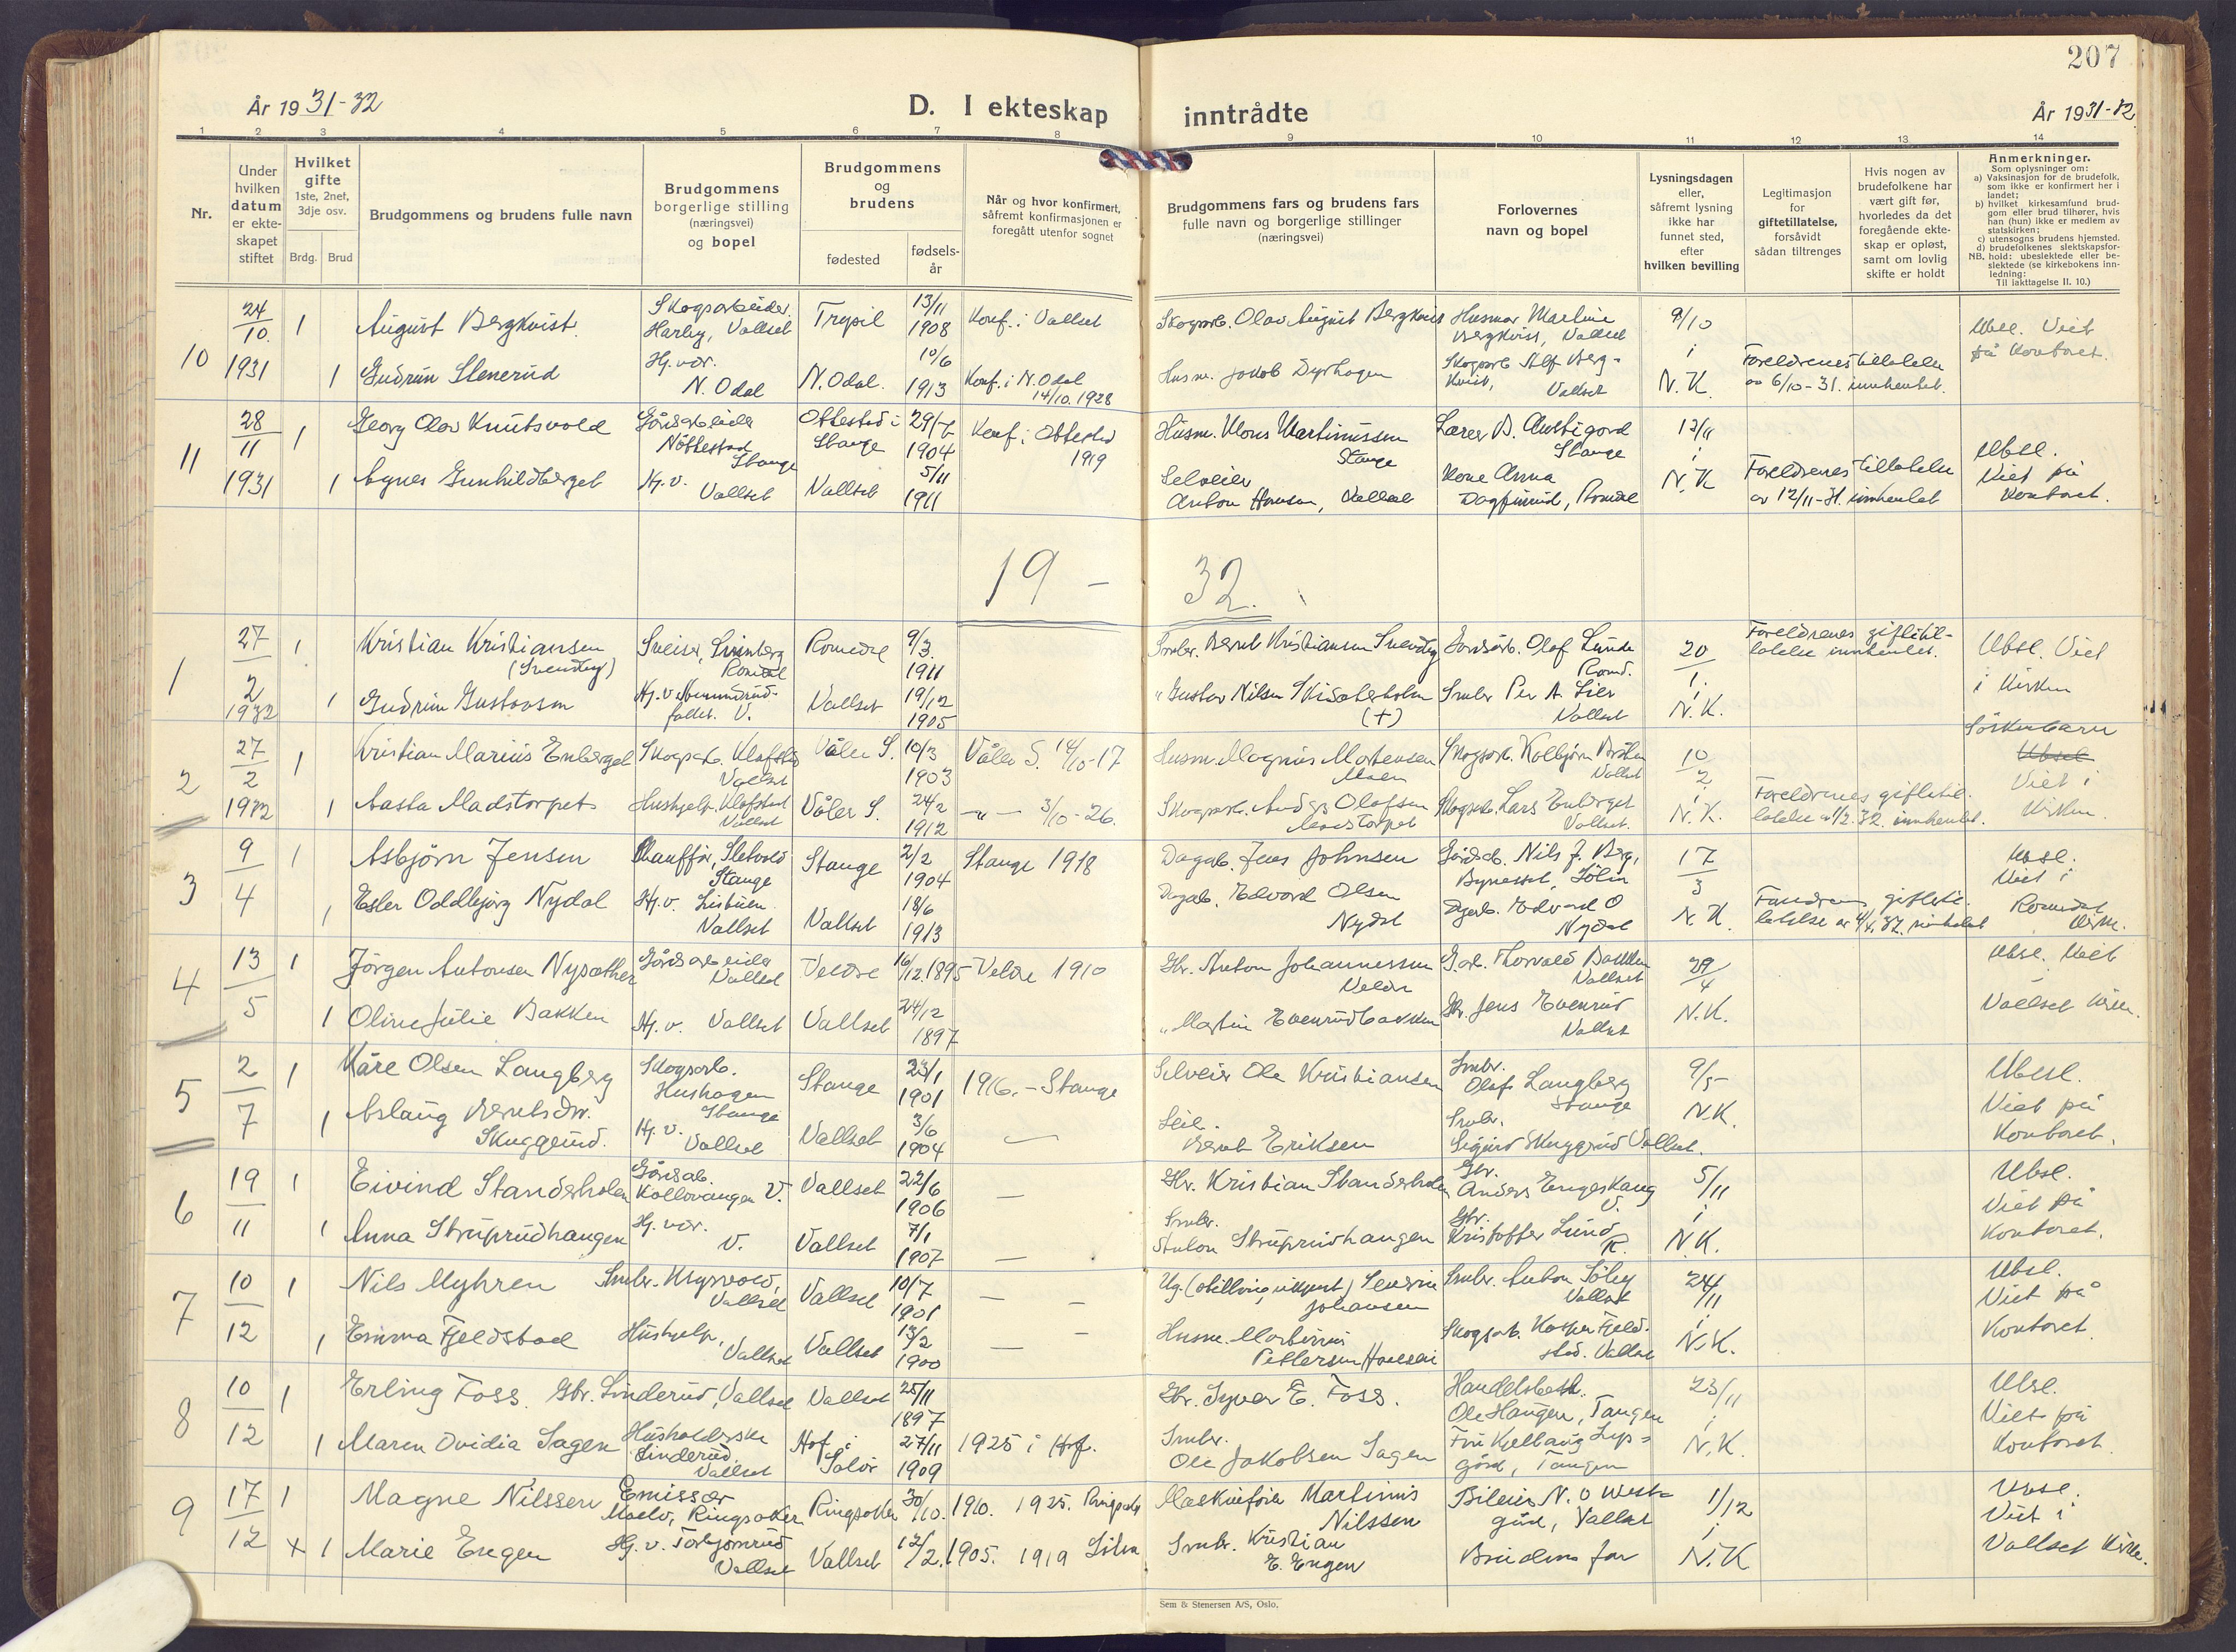 207
År 1931-32
D. I ekteskap inntrådte
År 1931-32
1 2 3 4 5 6 7 8 9 10 11 12 13 14
Nr.
Under hvilken datum er ekteskapet stiftet
Hvilket gifte
1ste, 2net, 3dje osv.
Brdg. Brud
Brudgommens og brudens fulle navn
Brudgommens borgerlige stilling (næringsvei) og bopel
Brudgommens og brudens
fødested
fødsels-år
Når og hvor konfirmert, såfremt konfirmasjonen er foregått utenfor sognet
Brudgommens fars og brudens fars fulle navn og borgerlige stillinger (næringsvei)
Forlovernes navn og bopel
Lysningsdagen eller, såfremt lysning ikke har funnet sted, efter hvilken bevilling
Legitimasjon for giftetillatelse, forsåvidt sådan tiltrenges
Hvis nogen av brudefolkene har vært gift før, hvorledes da det foregående ekteskap er opløst, samt om lovlig skifte er holdt
Anmerkninger.
Som oplysninger om:
a) Vaksinasjon for de brudefolk, som ikke er konfirmert her i landet;
b) hvilket kirkesamfund brudgom eller brud tilhører, hvis han (hun) ikke er medlem av statskirken;
c) utensogns brudens hjemsted.
d) brudefolkenes slektskapsforhold: ubeslektede eller beslektede (se kirkebokens innledning:
NB.
Til iakttagelse II. 10.)
10 24/10 1931 1 August Bergkvist Skogsarbeider. Harby, Vallset Trysil 13/11 1908 Konf. i Vallset Skogsarb. Olav August Bergkvist Husmor Martine Bergkvist, Vallset 9/10 Ubsl. Viet på kontoret.
1 Gudrun Stenerud Hj.vær. N. Odal N. Odal. 10/6 1913 Konf. i N. Odal 14/10.1928 Husm. Jakob Dyrhagen Skogsarb. Alf Bergkvist, Vallset i N.K. Foreldrenes tillatelse av 6/10-31. innhentet.
11 28/11 1931 1 Georg Olav Knutsvold Gårdsarbeider Nöttestad Stange Ottestad i Stange 29/7 1904 Konf. i Ottestad 1919 Husm. Klous Martinussen Stange Lærer B. Austigard Stange 12/11 Ubsl. Viet på kontoret.
1 Agnes Gunhildberget Hj.v. Vallset Vallset 5/11 1911 Selveier Anton Hansen, Vallset Kone Anna Dagfinrud, Romedal i N.K Foreldrenes tillatelse av 12/11-31. innhentet
19 - 32.
1 27/2 1932 1 Kristian Kristiansen (Svendby) Sveiser, Romedal Romedal 9/3. 1911 Smbr. Bernt Kristiansen Svendby Gårdsarb. Olaf Lunde Romd. 20/1. Foreldrenes giftetillatelse innhentet. Ubsl. Viet i Kirken
1 Gudrun Gustavsen Hj.v. V. Vallset 19/12 1905 " Gustav Nilsen Skiaberholen (+) Smbr Per A. Lier Vallset i N.K.
2 27/2 1932 1 Kristian Marius Enberget Skogsarb. Klofstad Vallset Våler S. 10/3 1903 Våler S. 14/10-17 Husm. Magnus Mortensen Moen Skogsarb. Kolbjörn Vallset 10/2 Söskenbarn Ubesl Viet i Kirken
1 Aasta Madstorpet Hushjelp, Klofstad Vallset Våler S. 24/2 1912 -"- 3/10-26. Skogsarb. Olafsen Madstorpet Skogsarb. Lars Enberget Vallset. i N.K. Foreldrenes giftetillatelse av 1/2.32. innhentet.
3 9/4 1 Asbjörn Jensen Chauffør, Sletvold Stange Stange 2/2 1904 Stange 1918 Dagarb. Jens Johnsen Gårdsarb. Nils J. Berg, 17/3 Ubsl. Viet i Romedal Kirke.
1 Ester Oddbjørg Nydal Hj.v. Vallset Vallset 18/6 1913 Dagarb. Edvard Olsen Nydal Dagarb. Edvard O Nydal N.K. Foreldrenes giftetillatelse
4 13/5 1 Jörgen Antonsen Nysæther Gårdsarbeider Vallset Veldre 16/12.1895 Veldre 1910 Gbr. Anton Johannessen Veldre G.arb. Thorvald Bakken Vallset 29/4 Ubsl. Viet i Vallset Kirke.
1 Oline Julie Bakken Hj.v. Vallset Vallset 24/12 1897 " Martin Evenrudbakken Gbr. Jens Evenrud Vallset N.K.
5 2/7 1 Kåre Olsen Langberg Skogsarb. Hushagen Stange Stange 23/1 1901 1916.-Stange Selveier Ole Kristiansen Smbr. Olaf Langberg Stange 9/5 Ubesl. Viet på Kontoret.
1 Aslaug Berntsdtr. Skuggrud. Hj.v. Vallset Vallset 3/6 1904 Bernt Eriksen Smbr. Sigurd Skuggrud Vallset. N.K.
6 19/11 1 Eivind Standerholen Gårdsarb. Kollovangen V. Vallset 22/6 1906 — Gbr. Kristian Standerholen Gbr. Anders Engeskaug V. 5/11 Ubsl. Viet på kontoret.
1 Anna Struprudhaugen Hj.vær. V. Vallset 7/1 1907 — Smbr. Struprudhaugen Gbr. Kristoffer Lund R. i N.K.
7 10/12 1 Nils Myhren Smbr. Vallset Vallset 10/7 1901 — Ug. (stilling ukjent) Severin Johansen Smbr. Anton Vallset 24/11 Ubsl. Viet på Kontoret.
1 Emma Fjeldstad Hushjelp, Vallset Vallset 13/2 1900 — Husm. Martinus Pettersen Skogsarb. Kasper Fjeldstad. Vallset i N.K.
8 10/12 1 Erling Foss. Gbr. Linderud, Vallset Vallset 25/11 1897 Gbr. Syver E. Foss. Handelsbest. Ole Haugen, Tangen 23/11 Ubsl. Viet på Kontoret.
1 Maren Ovidia Sagen Husholderske Linderud, Vallset Hof i Solör 27/11 1909 1925 i Hof. Smbr. Ole Jakobsen Sagen Fru Kjellaug Lysgård, Tangen i N.K.
9 17/12 1 Magne Nilssen Emissær Moelv, Ringsaker Ringsaker 30/10. 1910. 1925. Ringsaker Maskinfører Martinus Nilssen Bileier N. O Westgård, Vallset 1/12 Ubsl. Viet i Vallset Kirke.
x 1 Marie Engen Hj.v. Torbjörnrud Vallset Vallset 12/2. 1905. 1919 Smbr. Kristian E. Engen Brudens far i N.K
Sem & Stenersen A/S, Oslo.